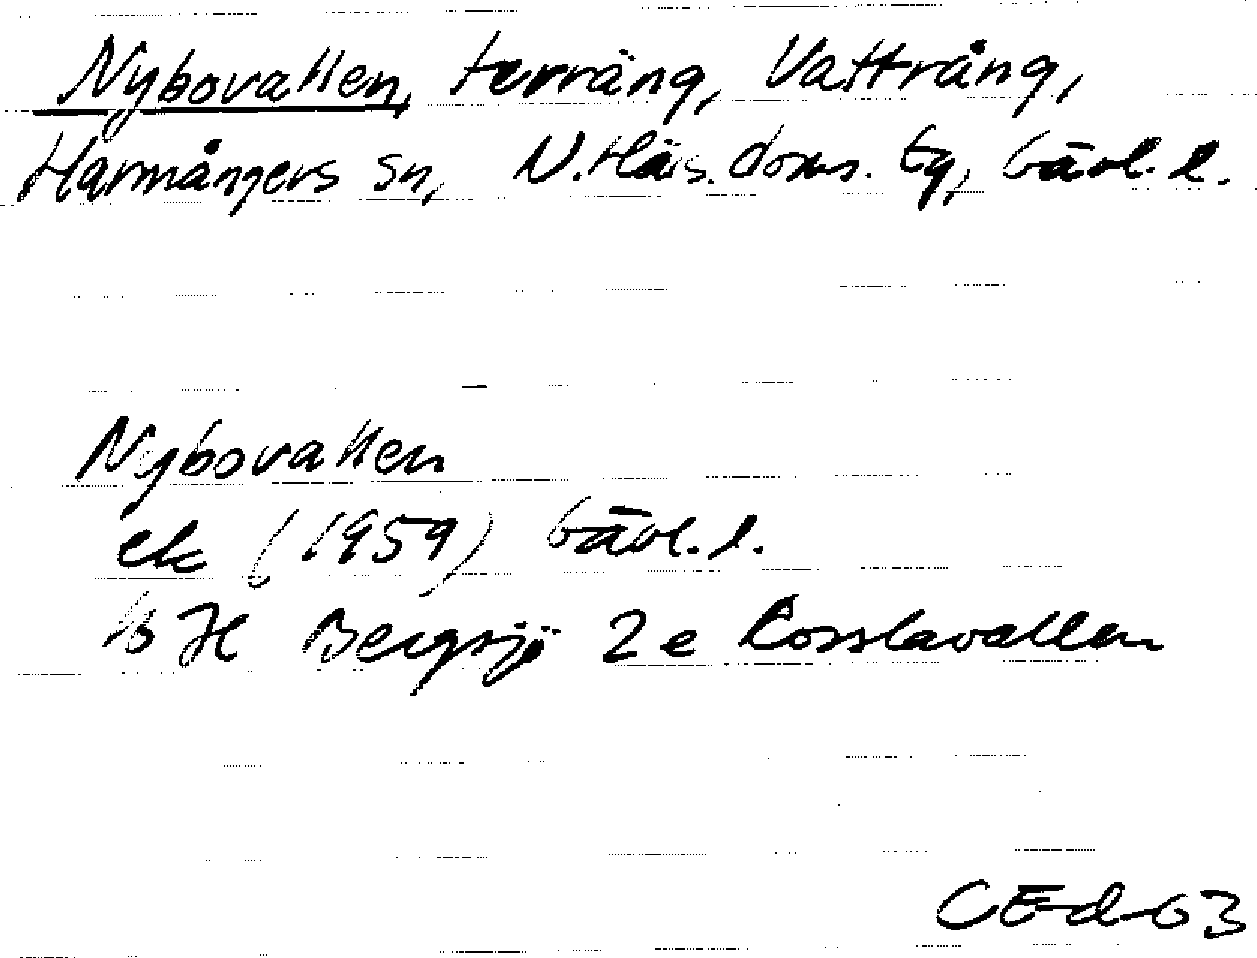 Nybovallen, terräng, Vattrång,
Harmångers sn, N.Häls. doms. Gg, Gävl.l.
Nybovallen
ek (1959) Gävl.l.
16 H Bergsjö 2e Rosslavallen
CEd 63